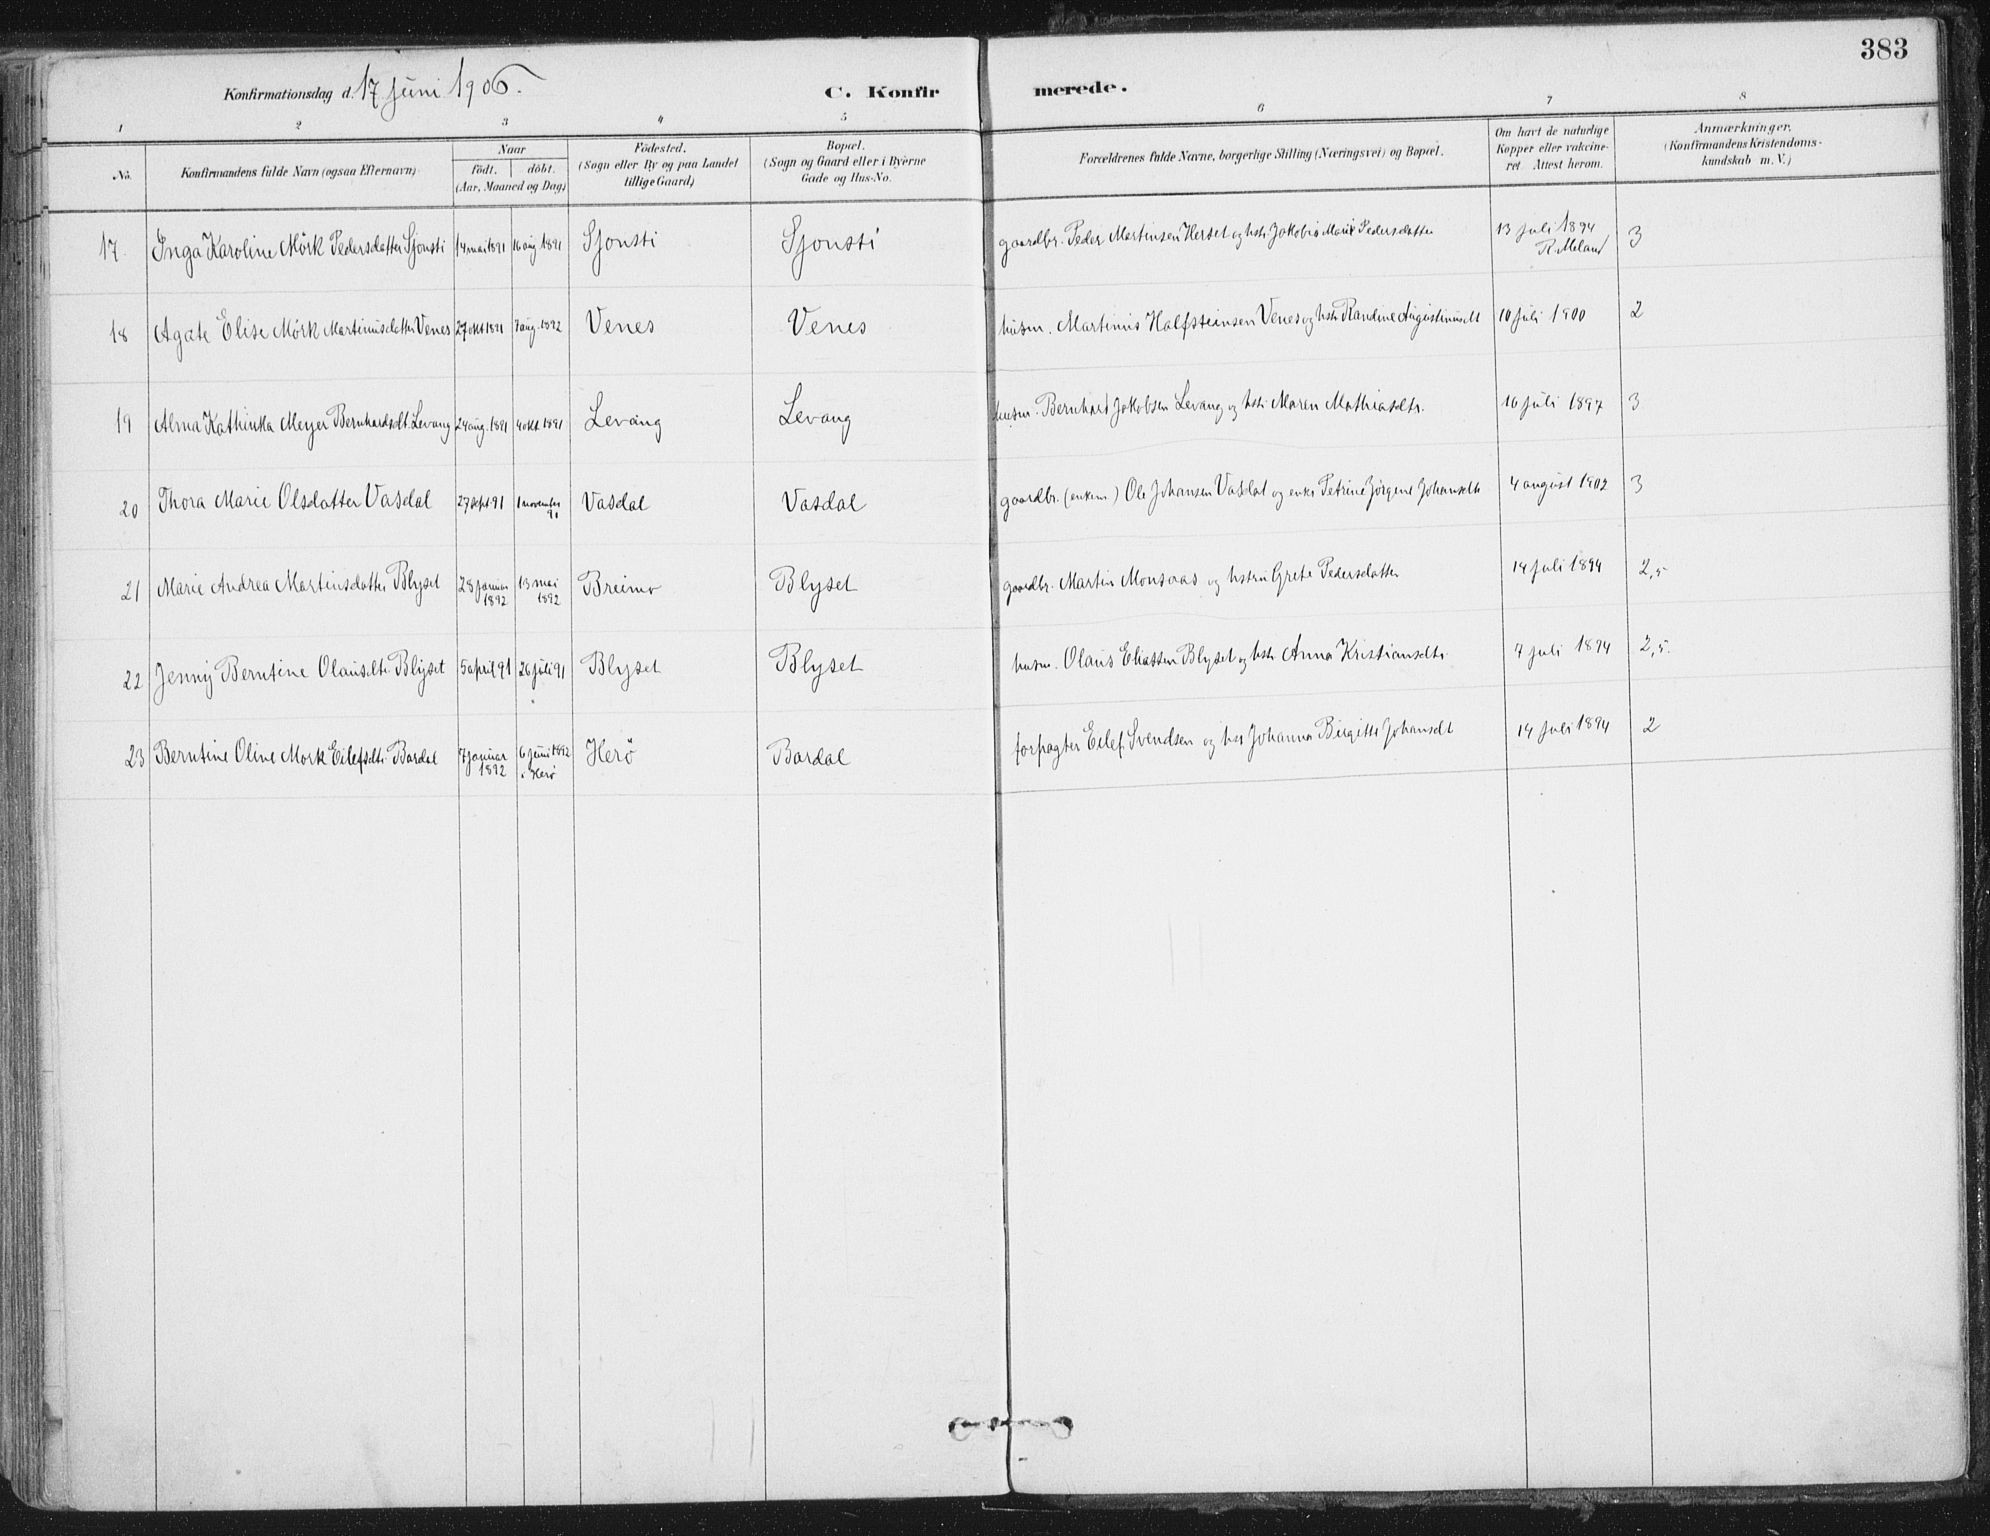 383
Konfirmationsdag d. 17 juni 1906.
C. Konfirmerede.
1 2 3 4 5 6 7 8
No. Konfirmandens fulde Navn (ogsaa Efternavn). Naar født. døbt. (Aar, Maaned og Dag) Fødested. (Sogn eller By og paa Landet tillige Gaard) Bopæl. (Sogn og Gaard eller i Byerne Gade og Hus-No. Forældrenes fulde Navne, borgerlige Stilling (Næringsvei) og Bopæl. Om havt de naturlige Kopper eller vakcineret. Attest herom. Anmærkninger. (Konfirmandens Kristendomskundskab m. V.)
17. Inga Karoline Mörk Pedersdatter Sjonsti 14 mai 1891 16 aug 1891 Sjonsti Sjonsti gaardbr. Peder Martinsen Herset og hstr Jakobia Marie Pedersdatter 13 juli 1894 R. Meland 3
18 Agate Elise Mörk Martinusdatter Venes 27 okt 1891 7 aug. 1892 Venes Venes husm. Martinus Halfsteinsen Venes og hstr Randine Augustinusdt 10 juli 1900 2
19 Alma Kathinka Meyer Bernhardsdt. Levang 24 aug. 1891 4 okt. 1891 Levang Levang husm. Bernhard Jakobsen Levang og hstr Maren Mathiasdtr. 16 juli 1897 3
20 Thora Marie Olsdatter Vasdal 27 sept 91 1 november 91 Vasdal Vasdal gaardbr. (enkem.) Ole Johansen Vasdal og enke Petrine Jörgine Johansdtr 4 august 1902 3
21 Marie Andrea Martinsdatter Blyset 28 januar 1892 13 mai 1892 Breimo Blyset gaardbr. Martin Monsaas og hstru Grete Pedersdatter 14 juli 1894 2,5
22 Jenny Berntine Olausdtr Blyset 5 april 91 26 juli 91 Blyset Blyset husm. Olaus Eliassen Blyset og hstr Anna Kristiansdtr. 7 juli 1894 2,5.
23 Berntine Oline Mork Eilefsdtr. Bardal 7 januar 1892 6 juni 1892 i Herö Herö Bardal forpagter Eilef Svendsen og hstr Johanna Birgitte Johansdt 14 juli 1894 2